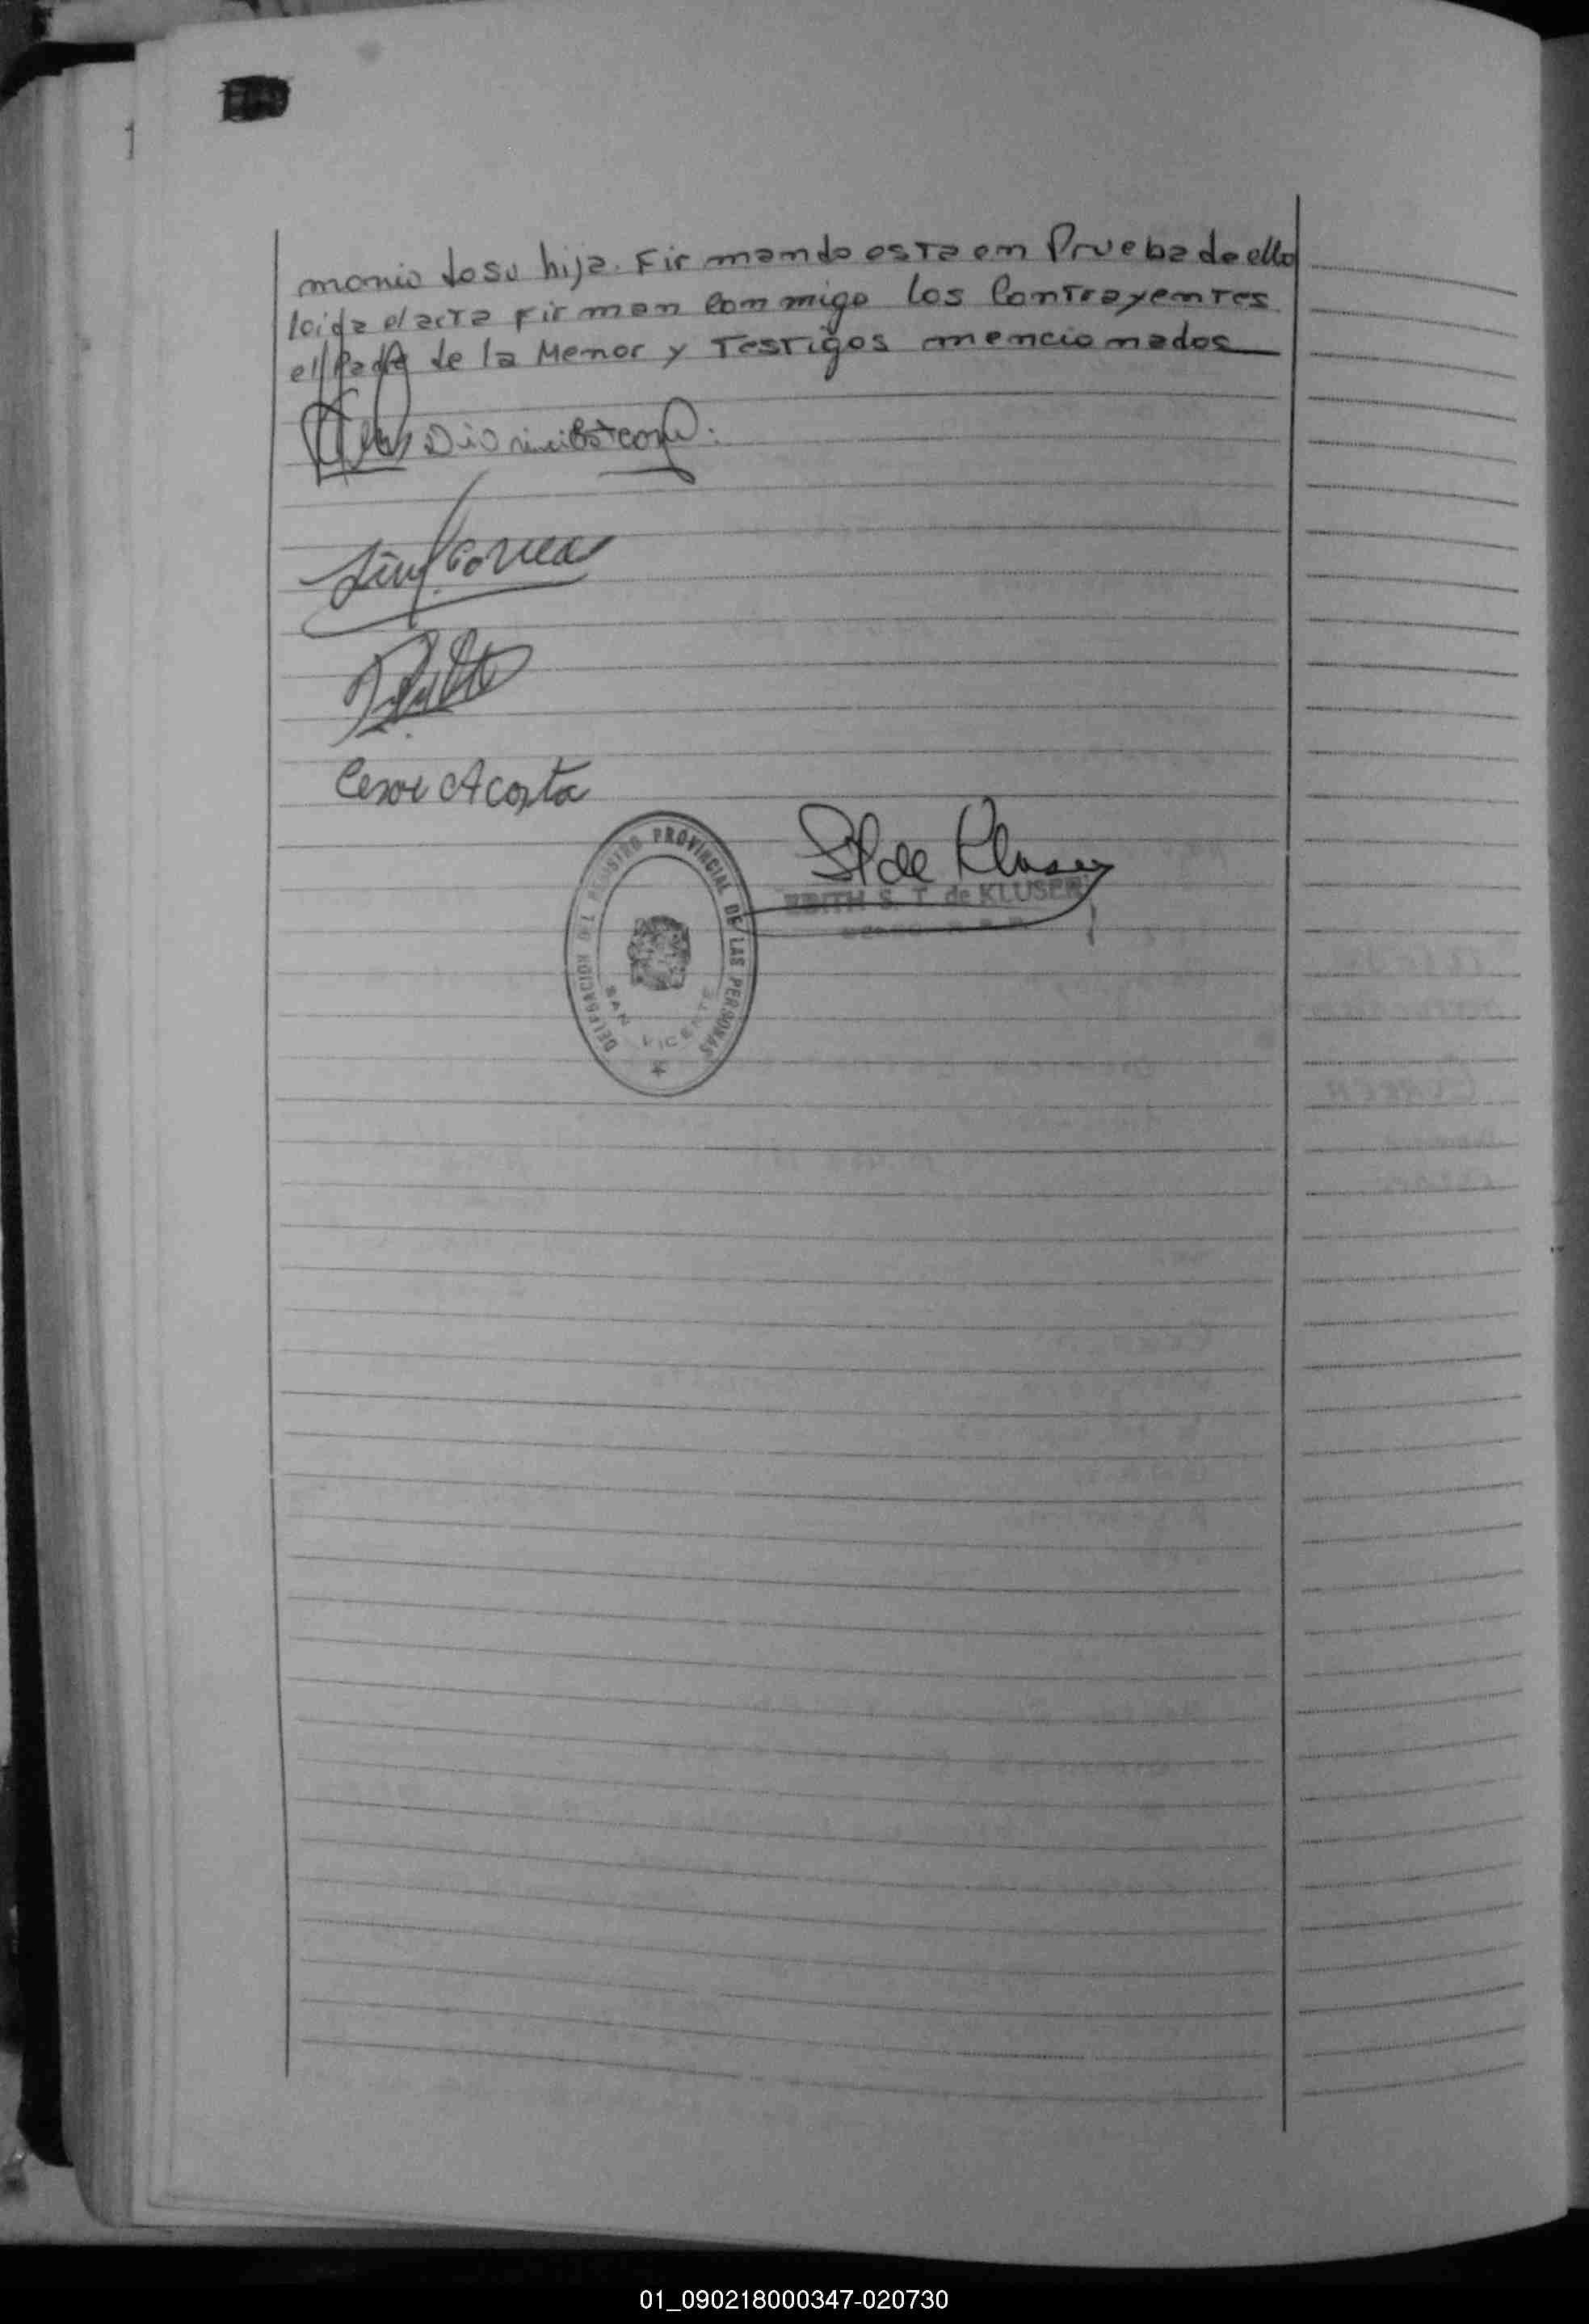 monio de su hija. Firmando esta en Prueba de ello
leida el acta firman conmigo los Contrayentes
el Padre de la Menor y Testigos mencionados
Correa
Cesar Acosta
DELEGACION DEL REGISTRO PROVINCIAL DE LAS PERSONAS
SAN VICENTE
S T de Kluser
EDITH S. T. de KLUSER
01_090218000347-020730